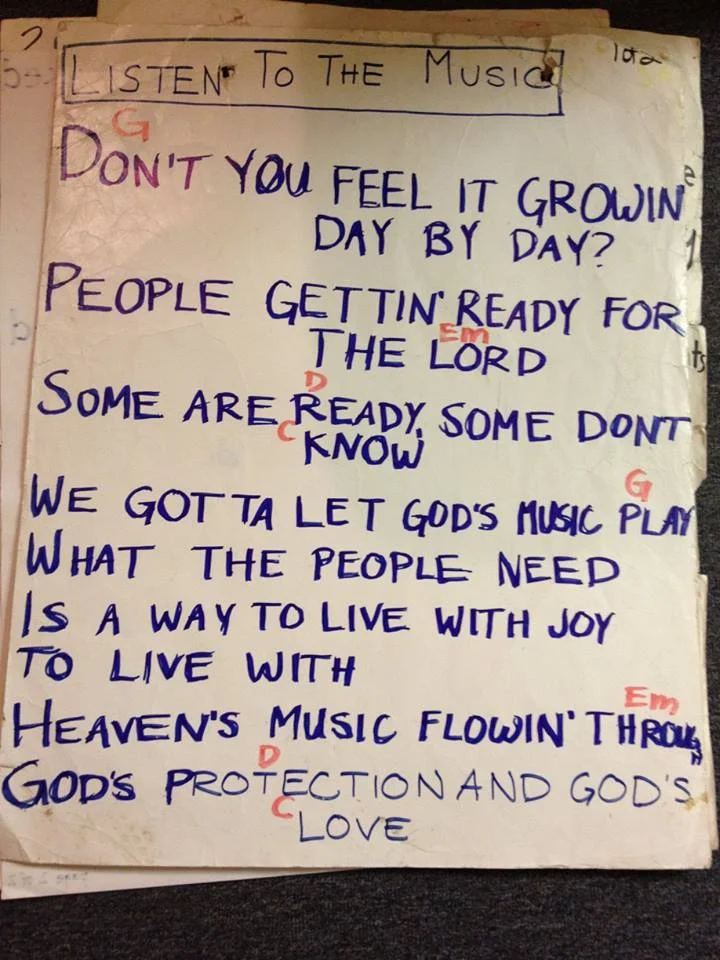 LISTEN TO THE MUSIC
1 of 2
G
DON'T YOU FEEL IT GROWIN'
DAY BY DAY?
PEOPLE GETTIN' READY FOR
Em
THE LORD
D
SOME ARE READY, SOME DONT
C
KNOW
G
WE GOTTA LET GOD'S MUSIC PLAY
WHAT THE PEOPLE NEED
IS A WAY TO LIVE WITH JOY
TO LIVE WITH
Em
HEAVEN'S MUSIC FLOWIN' THROUGH
D
GOD'S PROTECTION AND GOD'S
C
LOVE